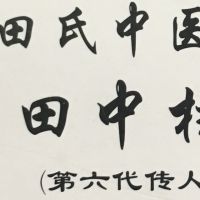 田氏中医
田中
(第六代传人